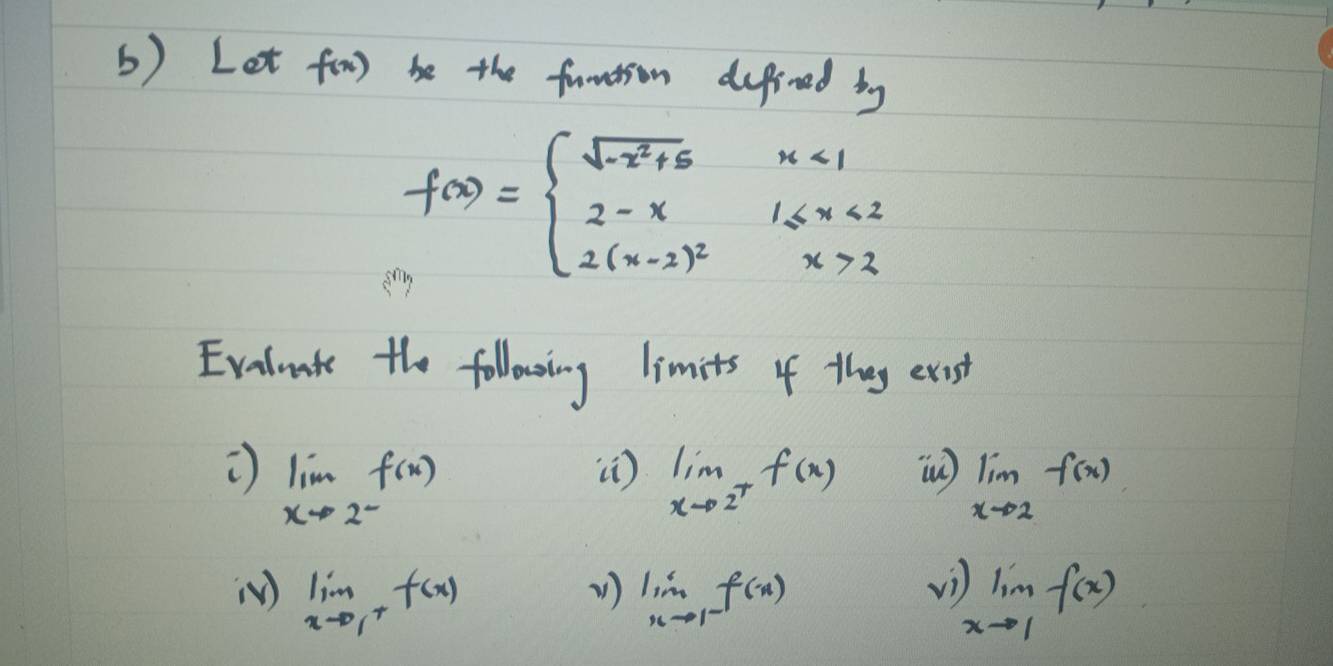 b) Let f(x) be the function defined by
f(x) = { √-x²+5 x < 1
2 - x 1 ≤ x < 2
2(x-2)² x > 2
Evaluate the following limits if they exist
i) lim x→2⁻ f(x) ii) lim x→2⁺ f(x) iii) lim x→2 f(x)
iv) lim x→1⁺ f(x) v) lim x→1⁻ f(x) vi) lim x→1 f(x)